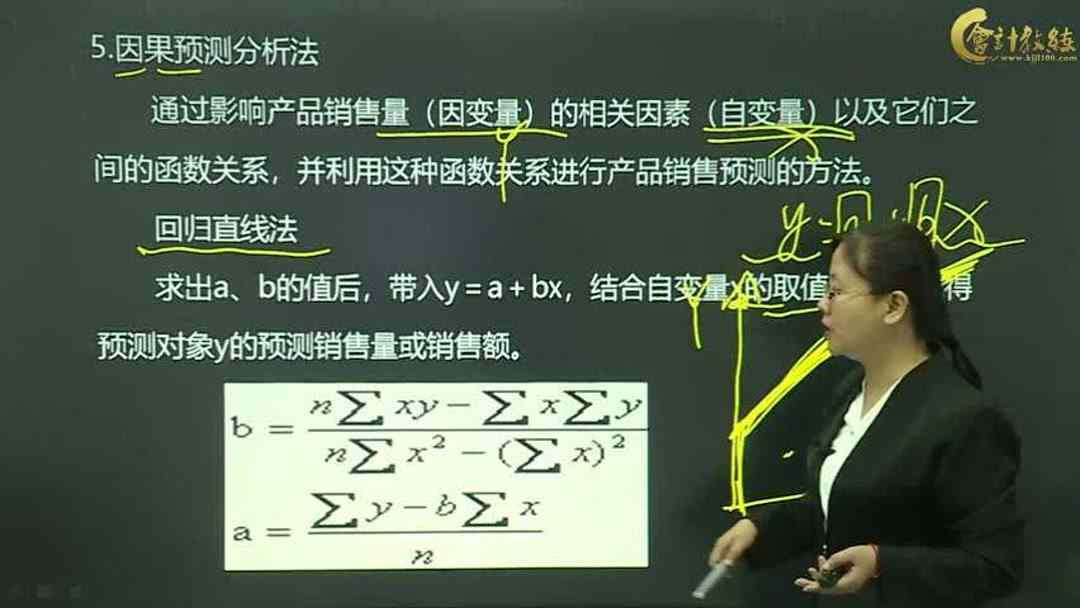 會計教练
www.kjjl100.com
5.因果预测分析法
通过影响产品销售量（因变量）的相关因素（自变量）以及它们之
间的函数关系，并利用这种函数关系进行产品销售预测的方法。
回归直线法
y=a+bx
求出a、b的值后，带入y＝a＋bx，结合自变量x的取值 得
Y
预测对象y的预测销售量或销售额。
b = (n∑xy − ∑x∑y) / (n∑x² − (∑x)²)
a = (∑y − b∑x) / n